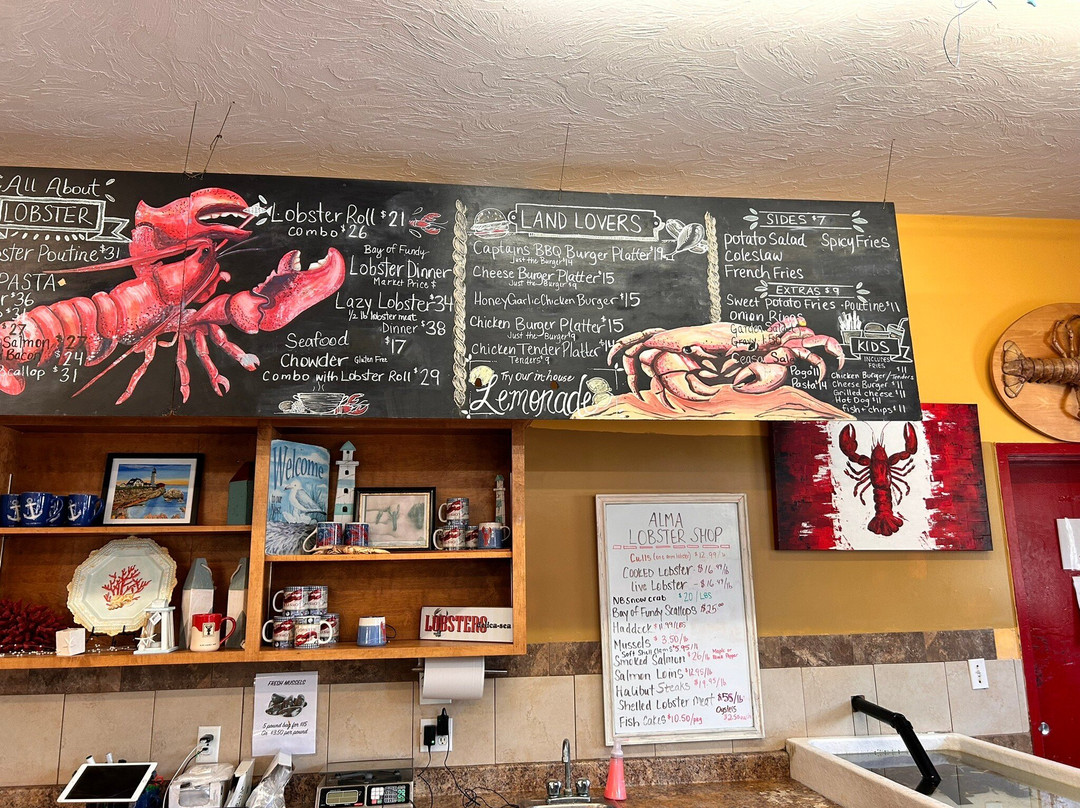 All About
LOBSTER
ster Poutine $31
PASTA
$36
$27
Salmon $27
Bacon $24
callop $31
Lobster Roll $21
combo $26
Bay of Fundy
Lobster Dinner
Market Price $
Lazy Lobster $34
1/2 lb lobster meat
Dinner $38
Seafood $17
Chowder Gluten Free
Combo with Lobster Roll $29
LAND LOVERS
Captains BBQ Burger Platter $19
Just the Burger $14
Cheese Burger Platter $15
Just the Burger $9
Honey Garlic Chicken Burger $15
Chicken Burger Platter $15
Just the Burger $9
Chicken Tender Platter $14
Tenders $9
Try our in-house
Lemonade
SIDES $7
Potato Salad Spicy Fries
Coleslaw
French Fries
EXTRAS $9
Sweet Potato Fries - Poutine $11
Onion Rings
Garden Salad
Gravy 1.50
Ceasa Sala
Pogo 11
Pasta $14
KIDS
INCLUDES
FRIES
Chicken Burger/Tenders $11
Cheese Burger $11
Grilled cheese $11
Hot Dog $11
fish + chips $11
Welcome
LOBSTERS
FRESH MUSSELS
5 pound bag for $15
Or $3.50 per pound
ALMA
LOBSTER SHOP
Culls $12.99/lb
COOKED LOBSTER - $16.49/lb
LIVE LOBSTER - $16.49/lb
NB SNOW CRAB $20/LBS
BAY OF FUNDY SCALLOPS $25.00
Haddock $9.99/LBS
Mussels $3.50/lb
Soft Shell Clams $5.95/lb
Smoked Salmon $26/lb Maple or Black Pepper
Salmon Loins $12.95/lb
Halibut Steaks $19.95/lb
Shelled Lobster Meat $55/lb
Oysters
Fish Cakes $10.50/pkg